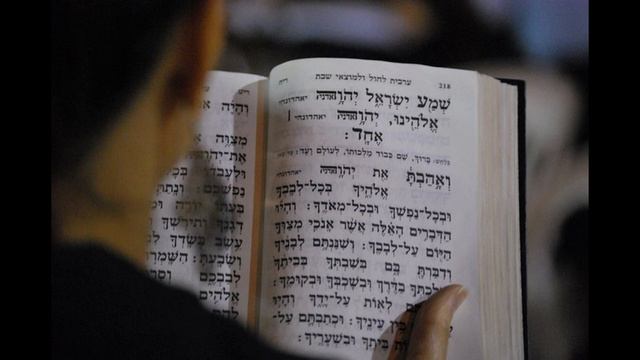 218 ערבית לחול ולמוצאי שבת ריח
שְׁמַע יִשְׂרָאֵל יְהֹוָה יאהדונהי
אֱלֹהֵינוּ, יְהֹוָה יאהדונהי |
אֶחָד:
בלחש: בָּרוּךְ, שֵׁם כְּבוֹד מַלְכוּתוֹ, לְעוֹלָם וָעֶד:
וְאָהַבְתָּ אֵת יְהֹוָה יאהדונהי
אֱלֹהֶיךָ בְּכָל־לְבָבְךָ
וּבְכָל־נַפְשְׁךָ וּבְכָל־מְאֹדֶךָ: וְהָיוּ
הַדְּבָרִים הָאֵלֶּה אֲשֶׁר אָנֹכִי מְצַוְּךָ
הַיּוֹם עַל־לְבָבֶךָ: וְשִׁנַּנְתָּם לְבָנֶיךָ
וְדִבַּרְתָּ בָּם בְּשִׁבְתְּךָ בְּבֵיתֶךָ
וּבְלֶכְתְּךָ בַדֶּרֶךְ וּבְשָׁכְבְּךָ וּבְקוּמֶךָ:
לְאוֹת עַל־יָדֶךָ וְהָיוּ
בֵּין עֵינֶיךָ: וּכְתַבְתָּם עַל־
בֵּיתֶךָ וּבִשְׁעָרֶיךָ:
וְהָיָה
מְצַוֶּה
אֶת־יְהֹוָה
וּלְעָבְדוֹ
נַפְשְׁכֶם: וְנָתַתִּי
בְּעִתּוֹ יוֹרֶה
דְגָנֶךָ וְתִירֹשְׁךָ
עֵשֶׂב בְּשָׂדְךָ
וְשָׂבָעְתָּ: הִשָּׁמְרוּ
לְבַבְכֶם וְסַרְתֶּם
אֱלֹהִים